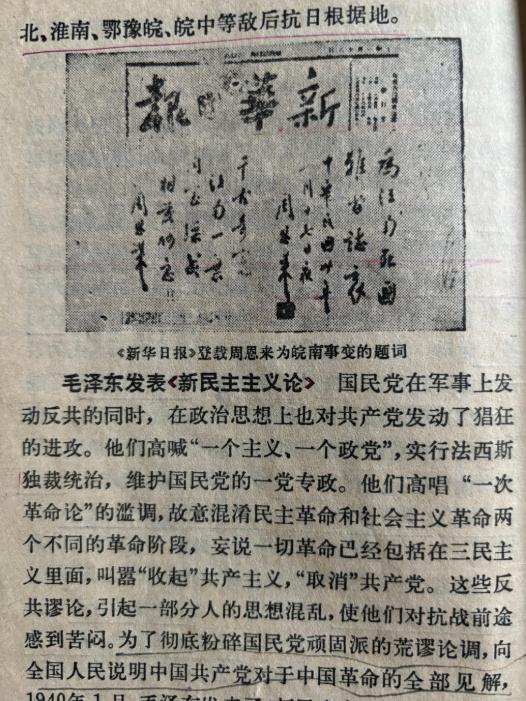 北、淮南、鄂豫皖、皖中等敌后抗日根据地。
新华日报
为江南死国
难者志哀
中华民国卅年
一月十七日夜
周恩来
千古奇冤
江南一叶
同室操戈
相煎何急
周恩来
《新华日报》登载周恩来为皖南事变的题词
毛泽东发表《新民主主义论》 国民党在军事上发
动反共的同时，在政治思想上也对共产党发动了猖狂
的进攻。他们高喊“一个主义、一个政党”，实行法西斯
独裁统治，维护国民党的一党专政。他们高唱“一次
革命论”的滥调，故意混淆民主革命和社会主义革命两
个不同的革命阶段，妄说一切革命已经包括在三民主
义里面，叫嚣“收起”共产主义，“取消”共产党。这些反
共谬论，引起一部分人的思想混乱，使他们对抗战前途
感到苦闷。为了彻底粉碎国民党顽固派的荒谬论调，向
全国人民说明中国共产党对于中国革命的全部见解，
1940年1月，毛泽东发表了《新民主